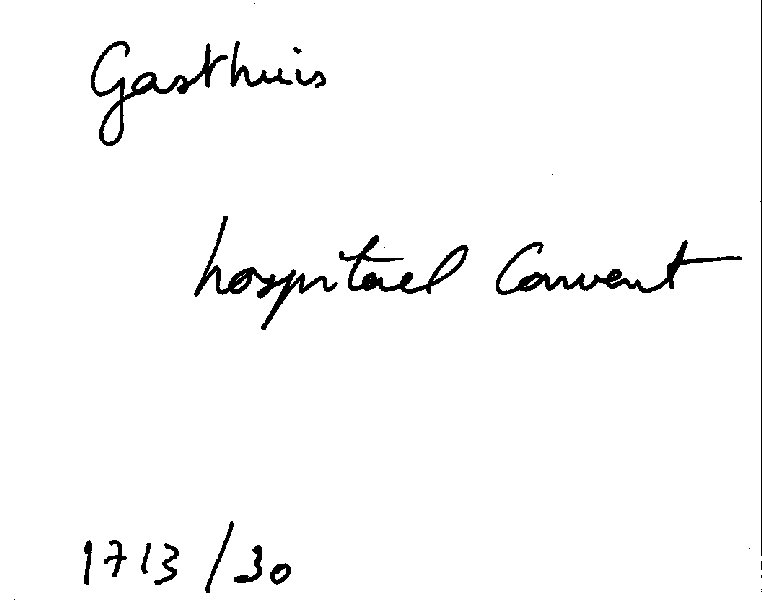 Gasthuis
hospitael Convent
1713/30